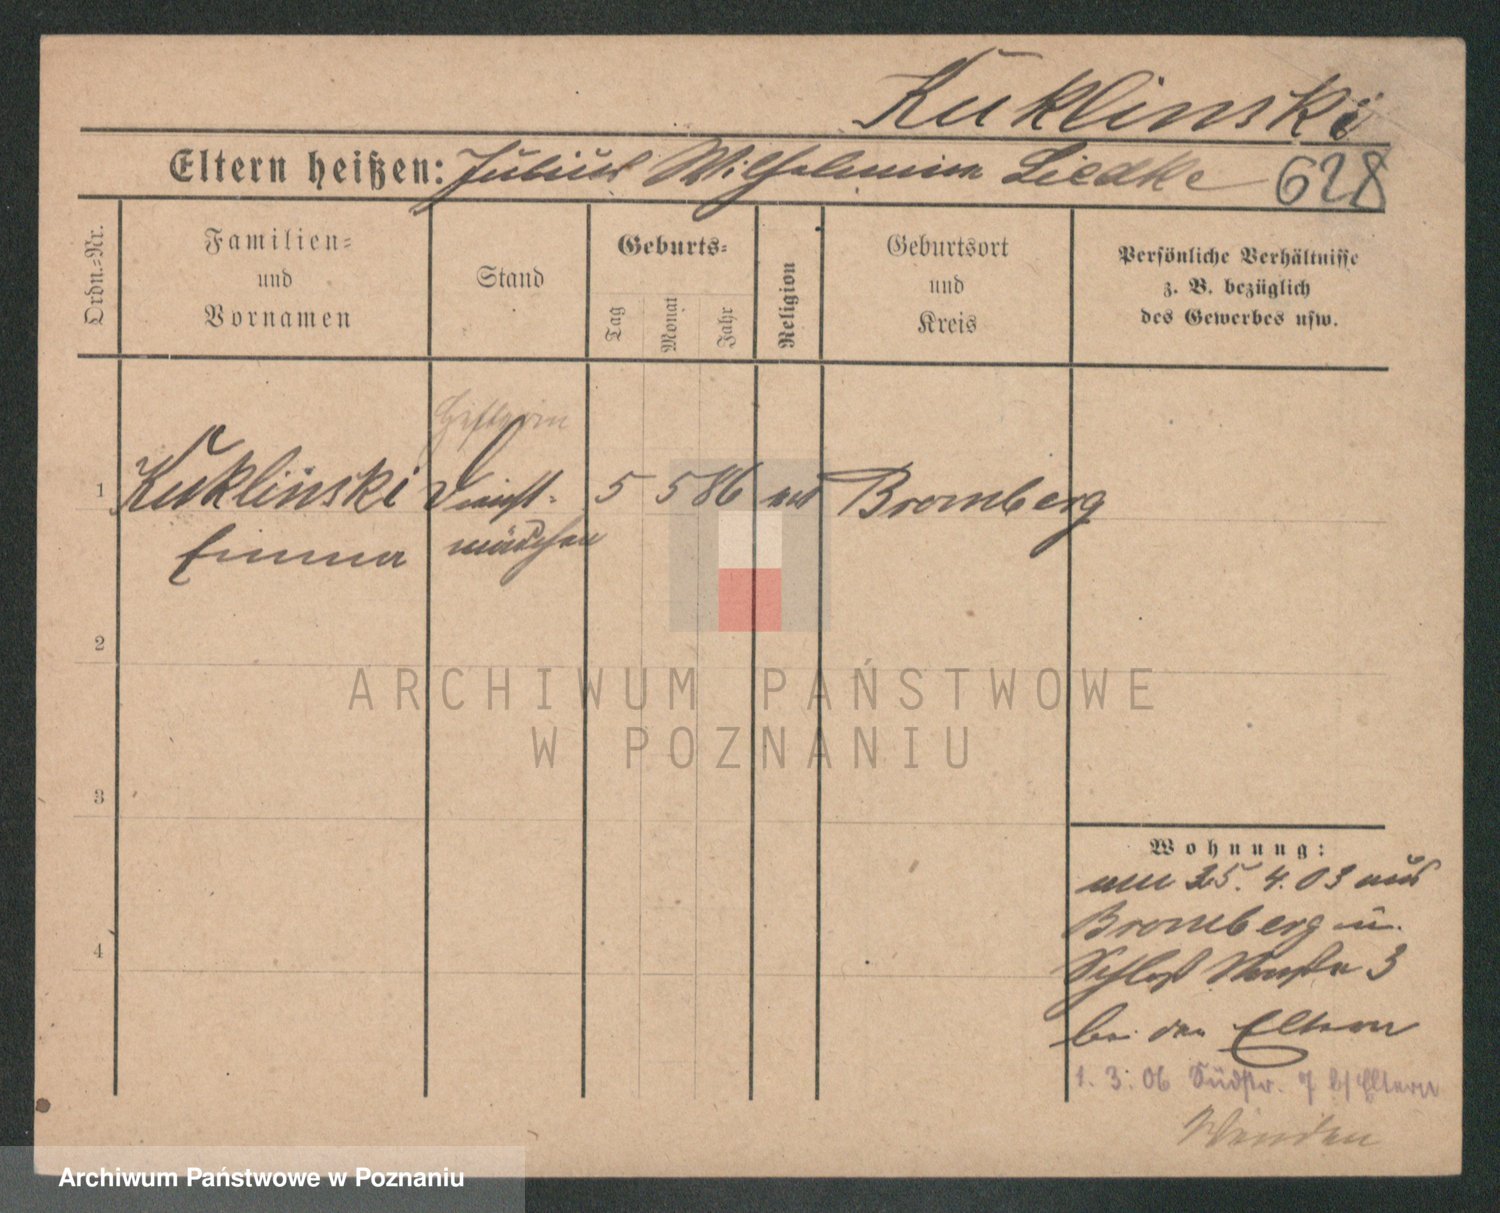 Kuklinski
Eltern heißen: Julius Wilhelmine Liedtke 628
Ordn.-Nr.
Familien-
und
Vornamen
Stand
Geburts-
Tag
Monat
Jahr
Religion
Geburtsort
und
Kreis
Persönliche Verhältnisse
z. B. bezüglich
des Gewerbes usw.
1 Kuklinski Dienst- 5 5 86 Bromberg
Emma mädchen
2
ARCHIWUM PAŃSTWOWE
W POZNANIU
3
Wohnung:
am 25. 4. 03 aus
Bromberg n.
Schloß Straße 3
bei den Eltern
1. 3. 06 Südstr. 7 b/ Eltern
Wenden
4
Archiwum Państwowe w Poznaniu